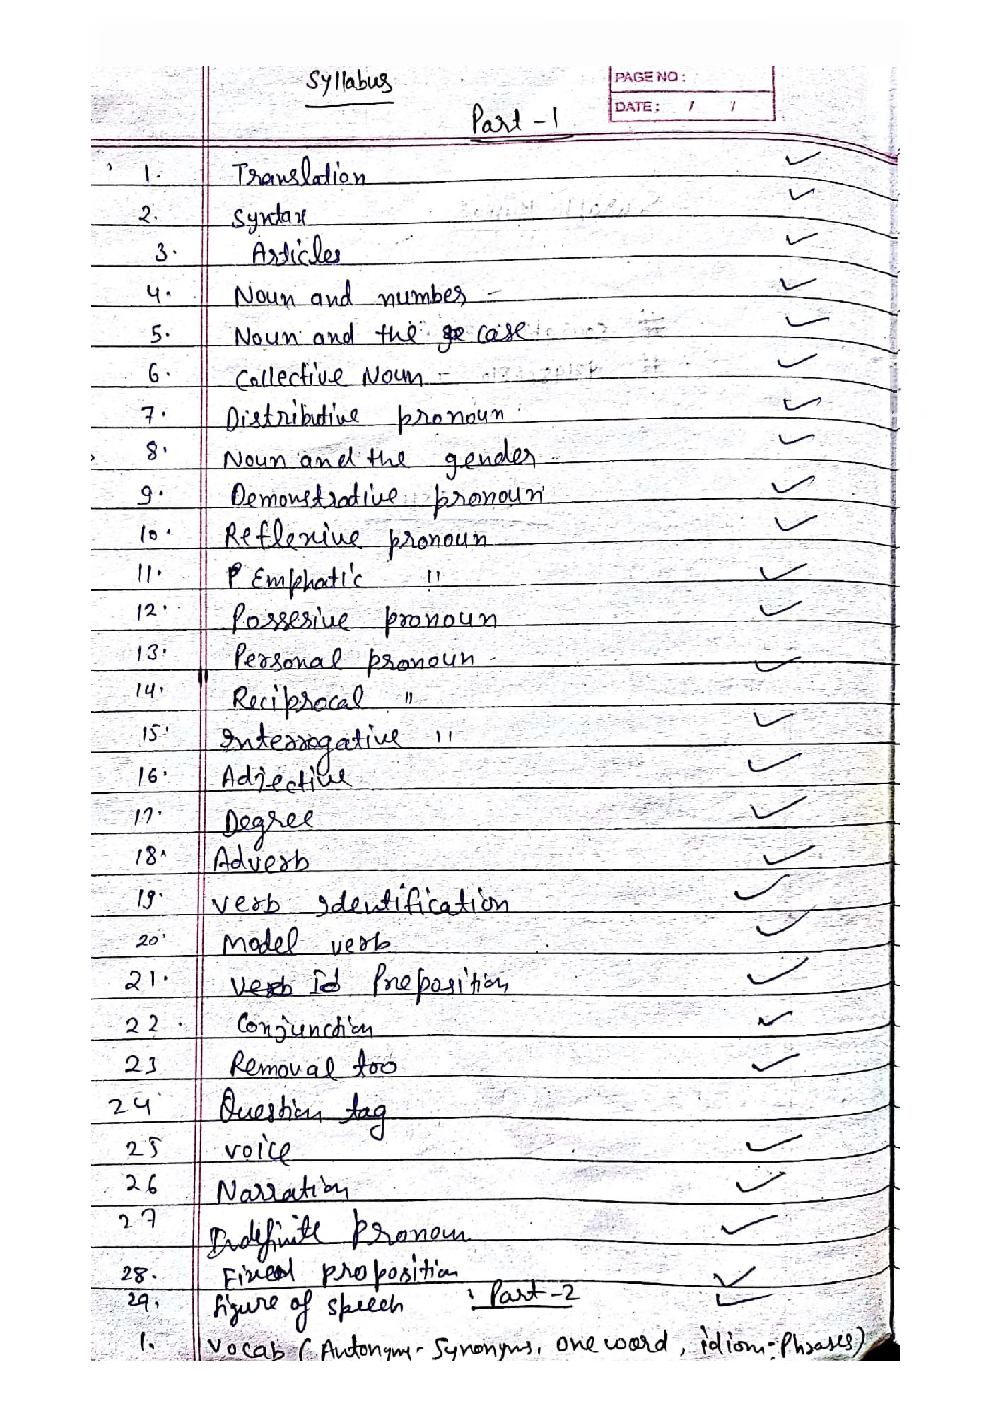 Syllabus
PAGE NO:
DATE: / /
Part - 1
1. Translation
2. Syntax
3. Articles
4. Noun and number -
5. Noun and the case
6. Collective Noun -
7. Distributive pronoun.
8. Noun and the gender
9. Demonstrative pronoun
10. Reflexive pronoun
11. Emphatic "
12. Possesive pronoun
13. Personal pronoun -
14. Reciprocal "
15. Interrogative "
16. Adjective
17. Degree
18. Adverb
19. verb Identification
20. Model verb
21. Verb Id Preposition
22. Conjunction
23 Removal too
24 Question tag
25 voice
26 Narration
27 Indefinite Pronoun
28. Fixed preposition
29. figure of speech
Part-2
1. Vocab (Antonyms - Synonyms, one word, idiom-Phrases)